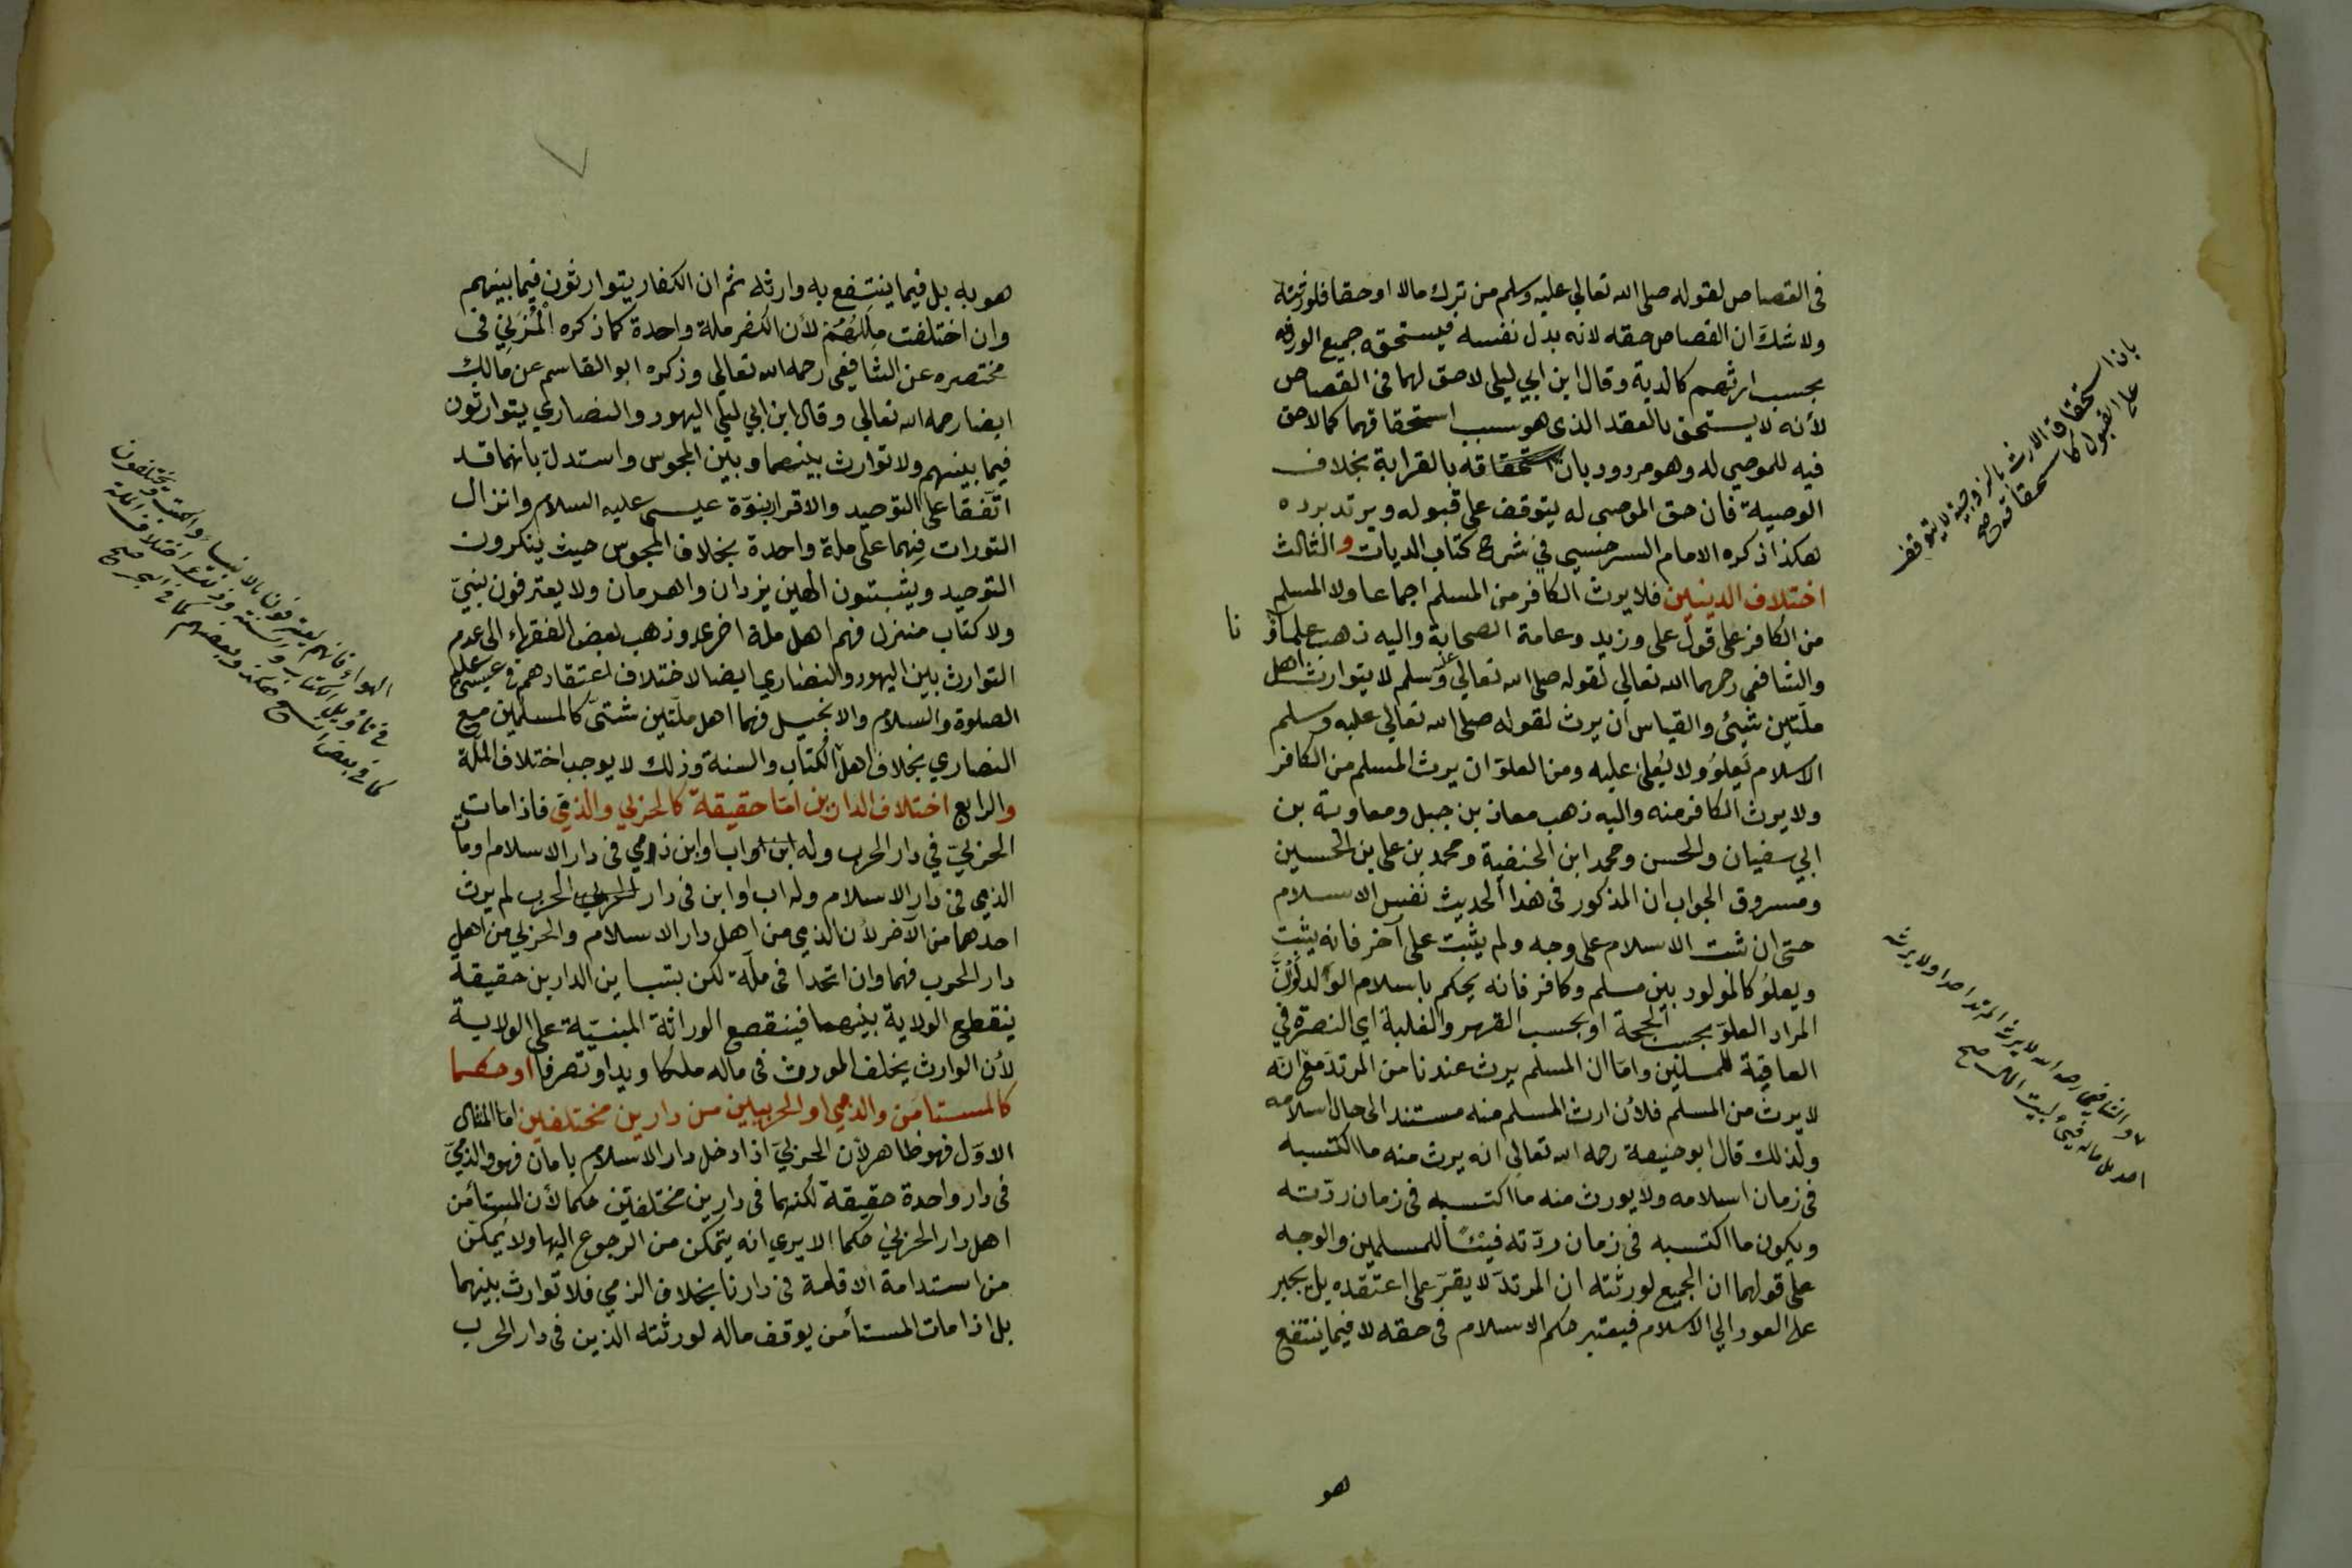 فى القصاص لقوله صلى الله تعالى عليه وسلم من ترك مالا او حقا فلورثته
ولا شك ان القصاص حقه لانه بدل نفسه فيستحقه جميع الورثه
بحسب ارثهم كالدية وقال ابن ابي ليلى لا حق لهما فى القصاص
لأنه لا يستحق بالعقد الذى هو سبب استحقاقهما كما لا حق
فيه للموصي له وهو مردود بان استحقاقه بالقرابة بخلاف
الوصية فان حق الموصى له يتوقف على قبوله ويرتد برده
هكذا ذكره الامام السرخسي في شرح كتاب الديات والثالث
اختلاف الدينين فلا يرث الكافر من المسلم اجماعا ولا المسلم
من الكافر على قول على وزيد وعامة الصحابة واليه ذهب علماؤ
نا
والشافعى رحمهما الله تعالي لقوله صلى الله تعالي عليه وسلم لا يتوارث اهل
ملّتين بشئ والقياس أن يرث لقوله صلى الله تعالي عليه وسلم
الاسلام يَعلوُ ولا يُعلى عليه ومن العلوّ ان يرث المسلم من الكافر
ولا يرث الكافر منه واليه ذهب معاذ بن جبل ومعاوية بن
ابي سفيان والحسن ومحمد ابن الحنفية ومحمد بن على بن الحسين
ومسروق الجواب ان المذكور فى هذا الحديث نفس الاسلام
حتى ان ثبت الاسلام على وجه ولم يثبت على آخر فانه يثبت
ويعلوُ كالمولود بين مسلم وكافر فانه يحكم باسلام الولد
المراد العلوّ بحسب الحجة او بحسب القهر والغلبة اي النصرة في
العاقبة للمسلمين واما ان المسلم يرث عندنا من المرتدّ مع انّه
لا يرث من المسلم فلأن ارث المسلم منه مستند الى حال اسلامه
ولذلك قال ابو حنيفة رحمه الله تعالى انه يرث منه ما اكتسبه
فى زمان اسلامه ولا يورث منه ما اكتسبه فى زمان ردّته
ويكون ما اكتسبه فى زمان ردّته فيئًا للمسلمين والوجه
على قولهما ان الجميع لورثته ان المرتدّ لا يقرّ على اعتقده بل يجبر
على العود الي الاسلام فيعتبر حكم الاسلام فى حقه لا فيما ينتفع
هو
بان استحقاق الارث بالزوجية لا يتوقف
على القبول كاستحقاقه صح
والشافعي رحمه الله لا يرث المرتد احدا ولا يرثه
احد بل ماله فيئ لبيت المال صح
هو به بل فيما ينتفع به وارثه ثم ان الكفار يتوارثون فيما بينهم
وان اختلفت مِلَلُهُمْ لأن الكفر ملة واحدة كما ذكره الْمُزَنِيّ فى
مختصره عن الشافعى رحمه الله تعالى وذكره ابو القاسم عن مالك
ايضا رحمه الله تعالي وقال ابن ابي ليلى اليهود والنصارى يتوارثون
فيما بينهم ولا توارث بينهما وبين المجوس واستدل بانهما قد
اتّفقا على التوحيد والاقرار بنبوّة عيسى عليه السلام وانزال
التورات فهما على ملة واحدة بخلاف المجوس حيث ينكرون
التوحيد ويثبتون الهين يزدان واهرمان ولا يعترفون بنبيّ
ولا كتاب منزل فهم اهل ملة اخرى وذهب بعض الفقهاء الى عدم
التوارث بين اليهود والنصارى ايضا لاختلاف اعتقادهم فى عيسى عليه
الصلوة والسلام والانجيل فهما اهل ملّتين شتىّ كالمسلمين مع
النصاري بخلاف اهل الكتاب والسنة وذلك لا يوجب اختلاف الملّة
والرابع اختلاف الدارين امّا حقيقة كالحربي والذمّي فاذا مات
الحربيّ في دار الحرب وله ابن او اب او ابن ذمي فى دار الاسلام او مات
الذمي فى دار الاسلام وله اب او ابن فى دار الحرب لم يرث
احدهما من الآخر لأن الذمي من اهل دار الاسلام والحربي من اهل
دار الحرب فهما وان اتحدا فى ملّة لكن بتباين الدارين حقيقة
ينقطع الولاية بينهما فينقصع الوراثة المبنيّة على الولاية
لأن الوارث يخلف المورث فى ماله ملكا ويدا وتصرفا او حكما
كالمستأمن والذمي او الحربيين من دارين مختلفين اما المثال
الاوّل فهو ظاهر لأن الحربيّ اذا دخل دار الاسلام بامان فهو والذميّ
فى دار واحدة حقيقة لكنهما فى دارين مختلفتين حكما لأن المستأمن
اهل دار الحربي حكما الا يري انه يتمكن من الرجوع اليها ولا يمكن
من استدامة الاقامة فى دارنا بخلاف الذمي فلا توارث بينهما
بل اذا مات المستأمن يوقف ماله لورثته الذين فى دار الحرب
الهواء فانهم يعترفون بالانبياء والكتب ويختلفون
فى تأويل الكتاب والسنة وذلك لا يوجب اختلاف الملة